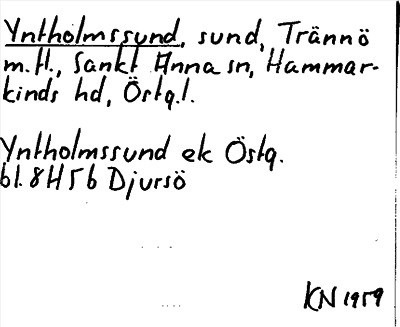 Yntholmssund, sund, Trännö
m.fl., Sankt Anna sn, Hammar-
kinds hd, Östg.l.
Yntholmssund ek Östg.
bl. 8H5b Djursö
KN 1959